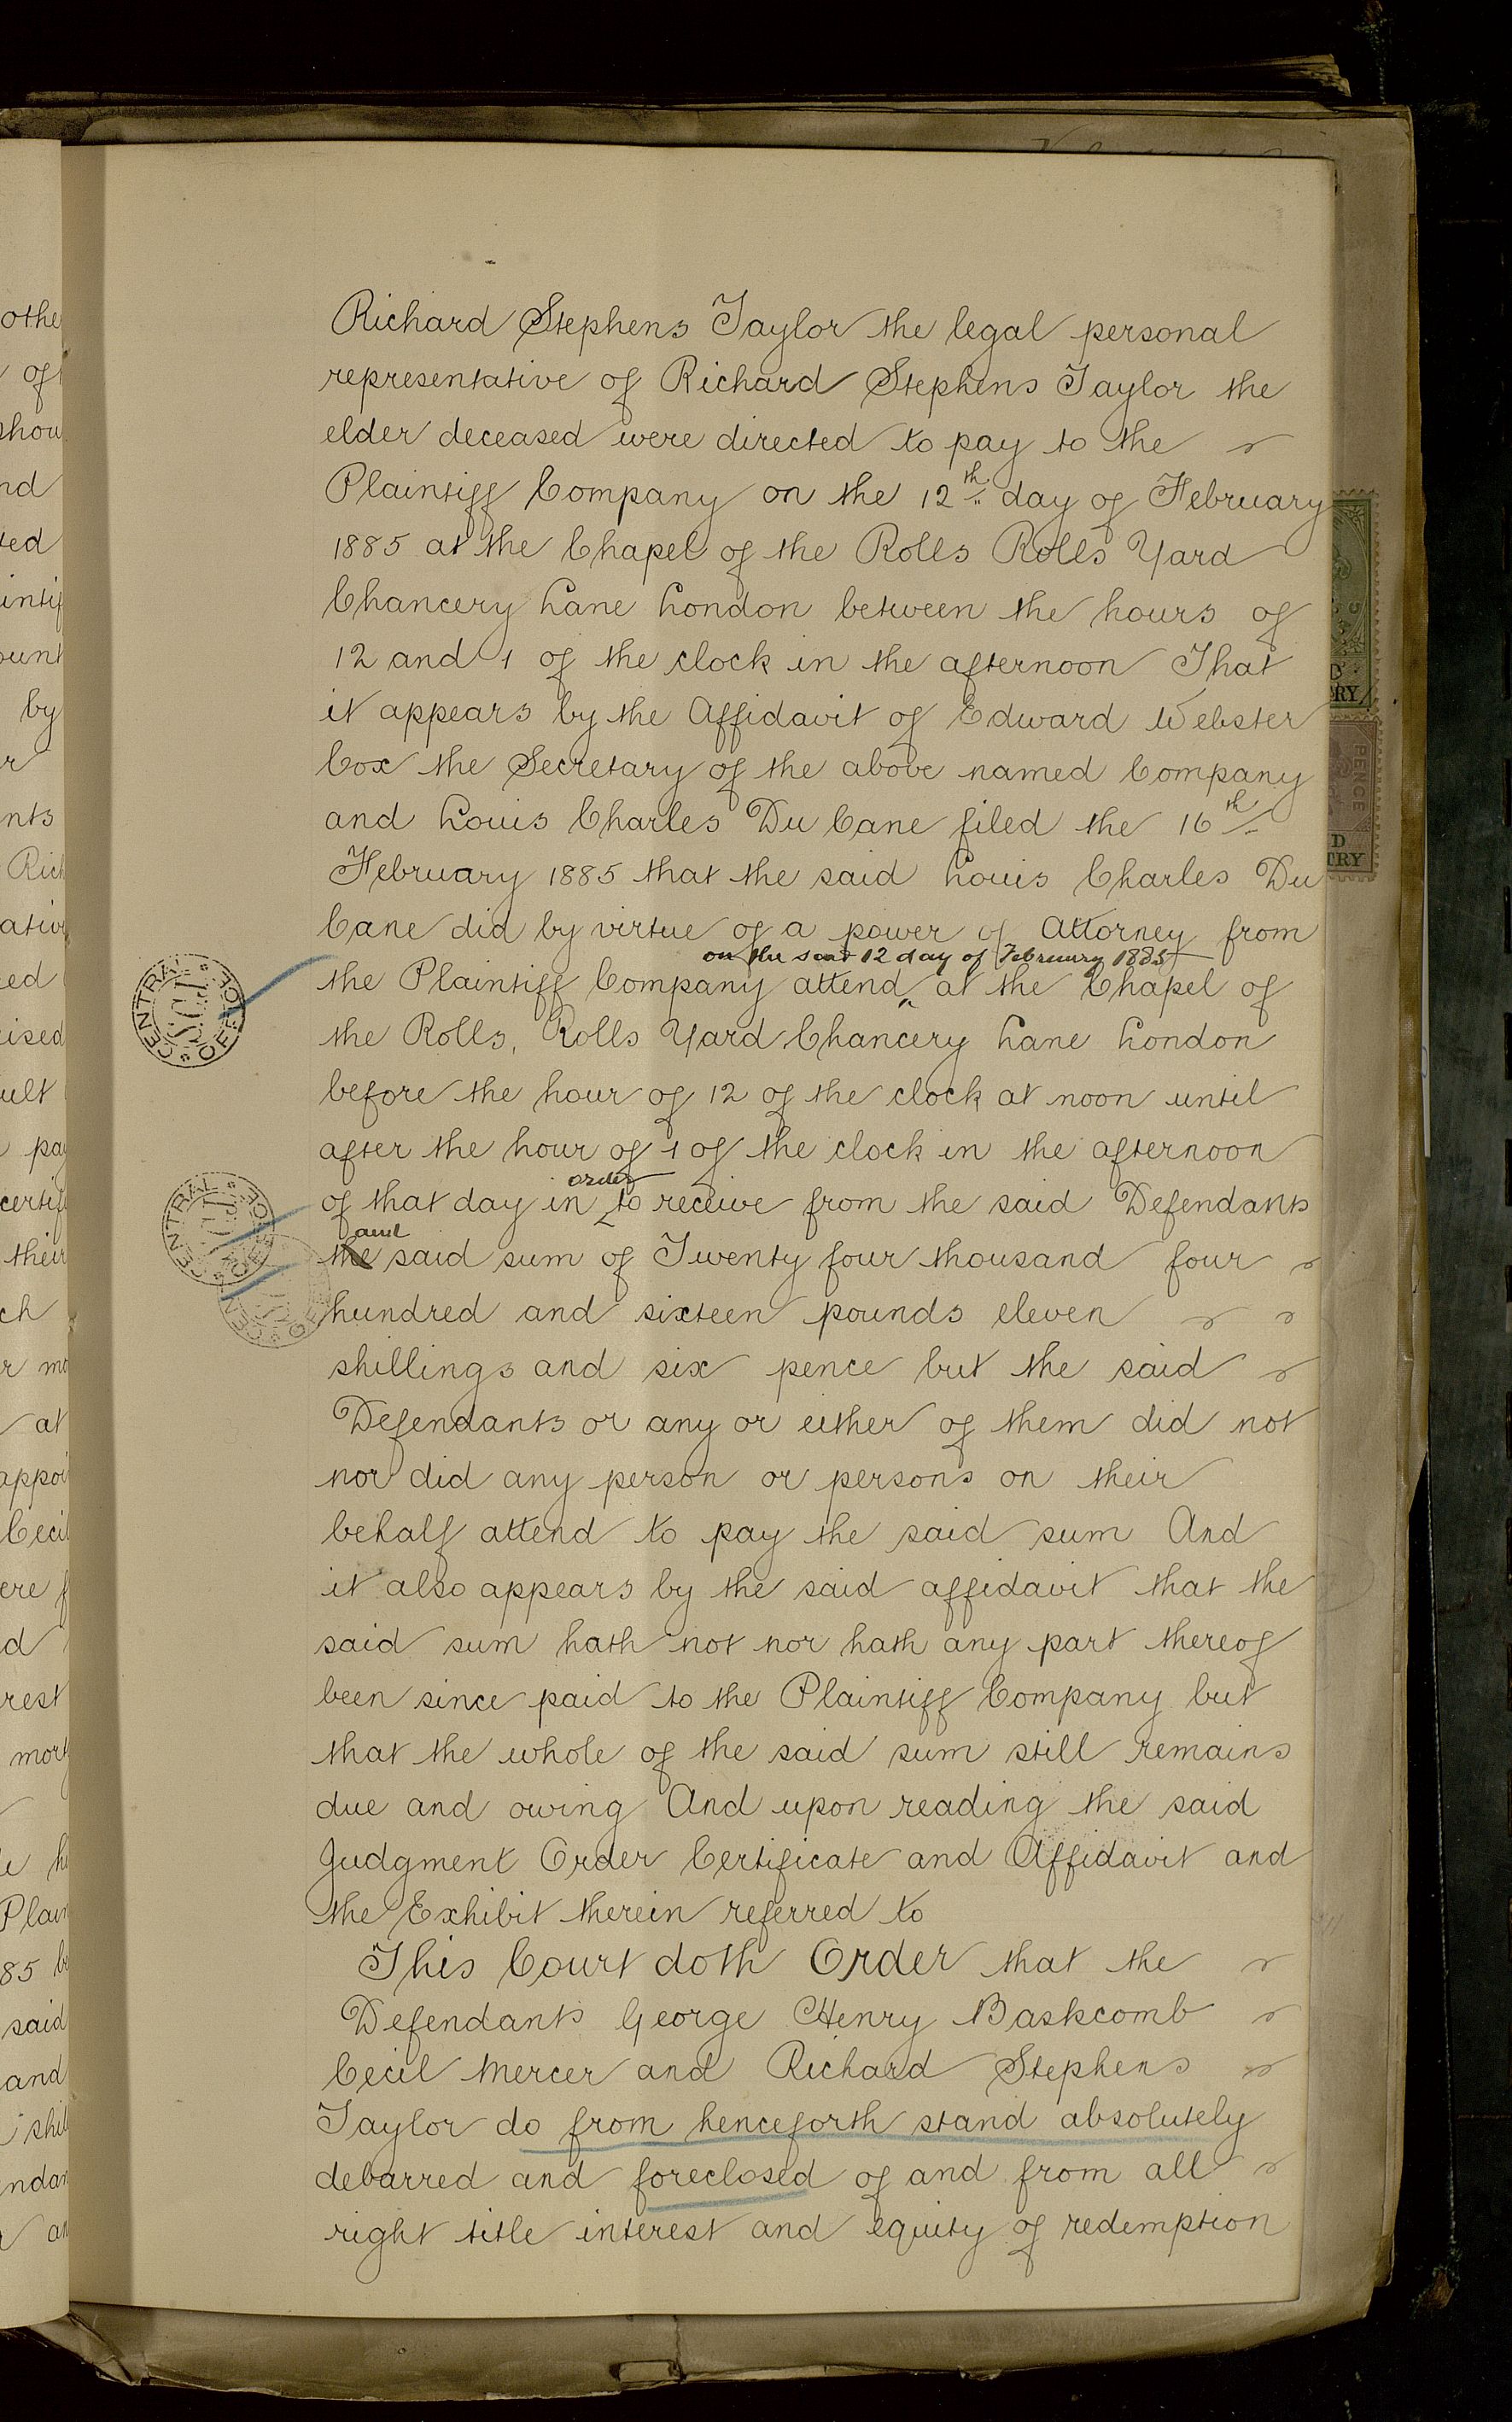 Richard Stephens Taylor the legal personal
representative of Richard Stephens Taylor the
elder deceased were directed to pay to the
Plaintiff Company on the 12th day of February
1885 at the Chapel of the Rolls Rolls Yard
Chancery Lane London between the hours of
12 and 1 of the clock in the afternoon That
it appears by the Affidavit of Edward Webster
Cox the Secretary of the above named Company
and Louis Charles Du Cane filed the 16th
February 1885 that the said Louis Charles Du
Cane did by virtue of a power of Attorney from
on the said 12 day of February 1885
the Plaintiff Company attend at the Chapel of
the Rolls, Rolls Yard Chancery Lane London
before the hour of 12 of the clock at noon until
after the hour of 1 of the clock in the afternoon
order
of that day in to receive from the said Defendants
the said sum of Twenty four thousand four
hundred and sixteen pounds eleven
shillings and six pence but the said
Defendants or any or either of them did not
nor did any person or persons on their
behalf attend to pay the said sum And
it also appears by the said affidavit that the
said sum hath not nor hath any part thereof
been since paid to the Plaintiff Company but
that the whole of the said sum still remains
due and owing And upon reading the said
Judgment Order Certificate and Affidavit and
the Exhibit therein referred to
This Court doth Order that the
Defendants George Henry Baskcomb
Cecil Mercer and Richard Stephens
Taylor do from henceforth stand absolutely
debarred and foreclosed of and from all
right title interest and equity of redemption
CENTRAL OFFICE
CENTRAL OFFICE
PENCE